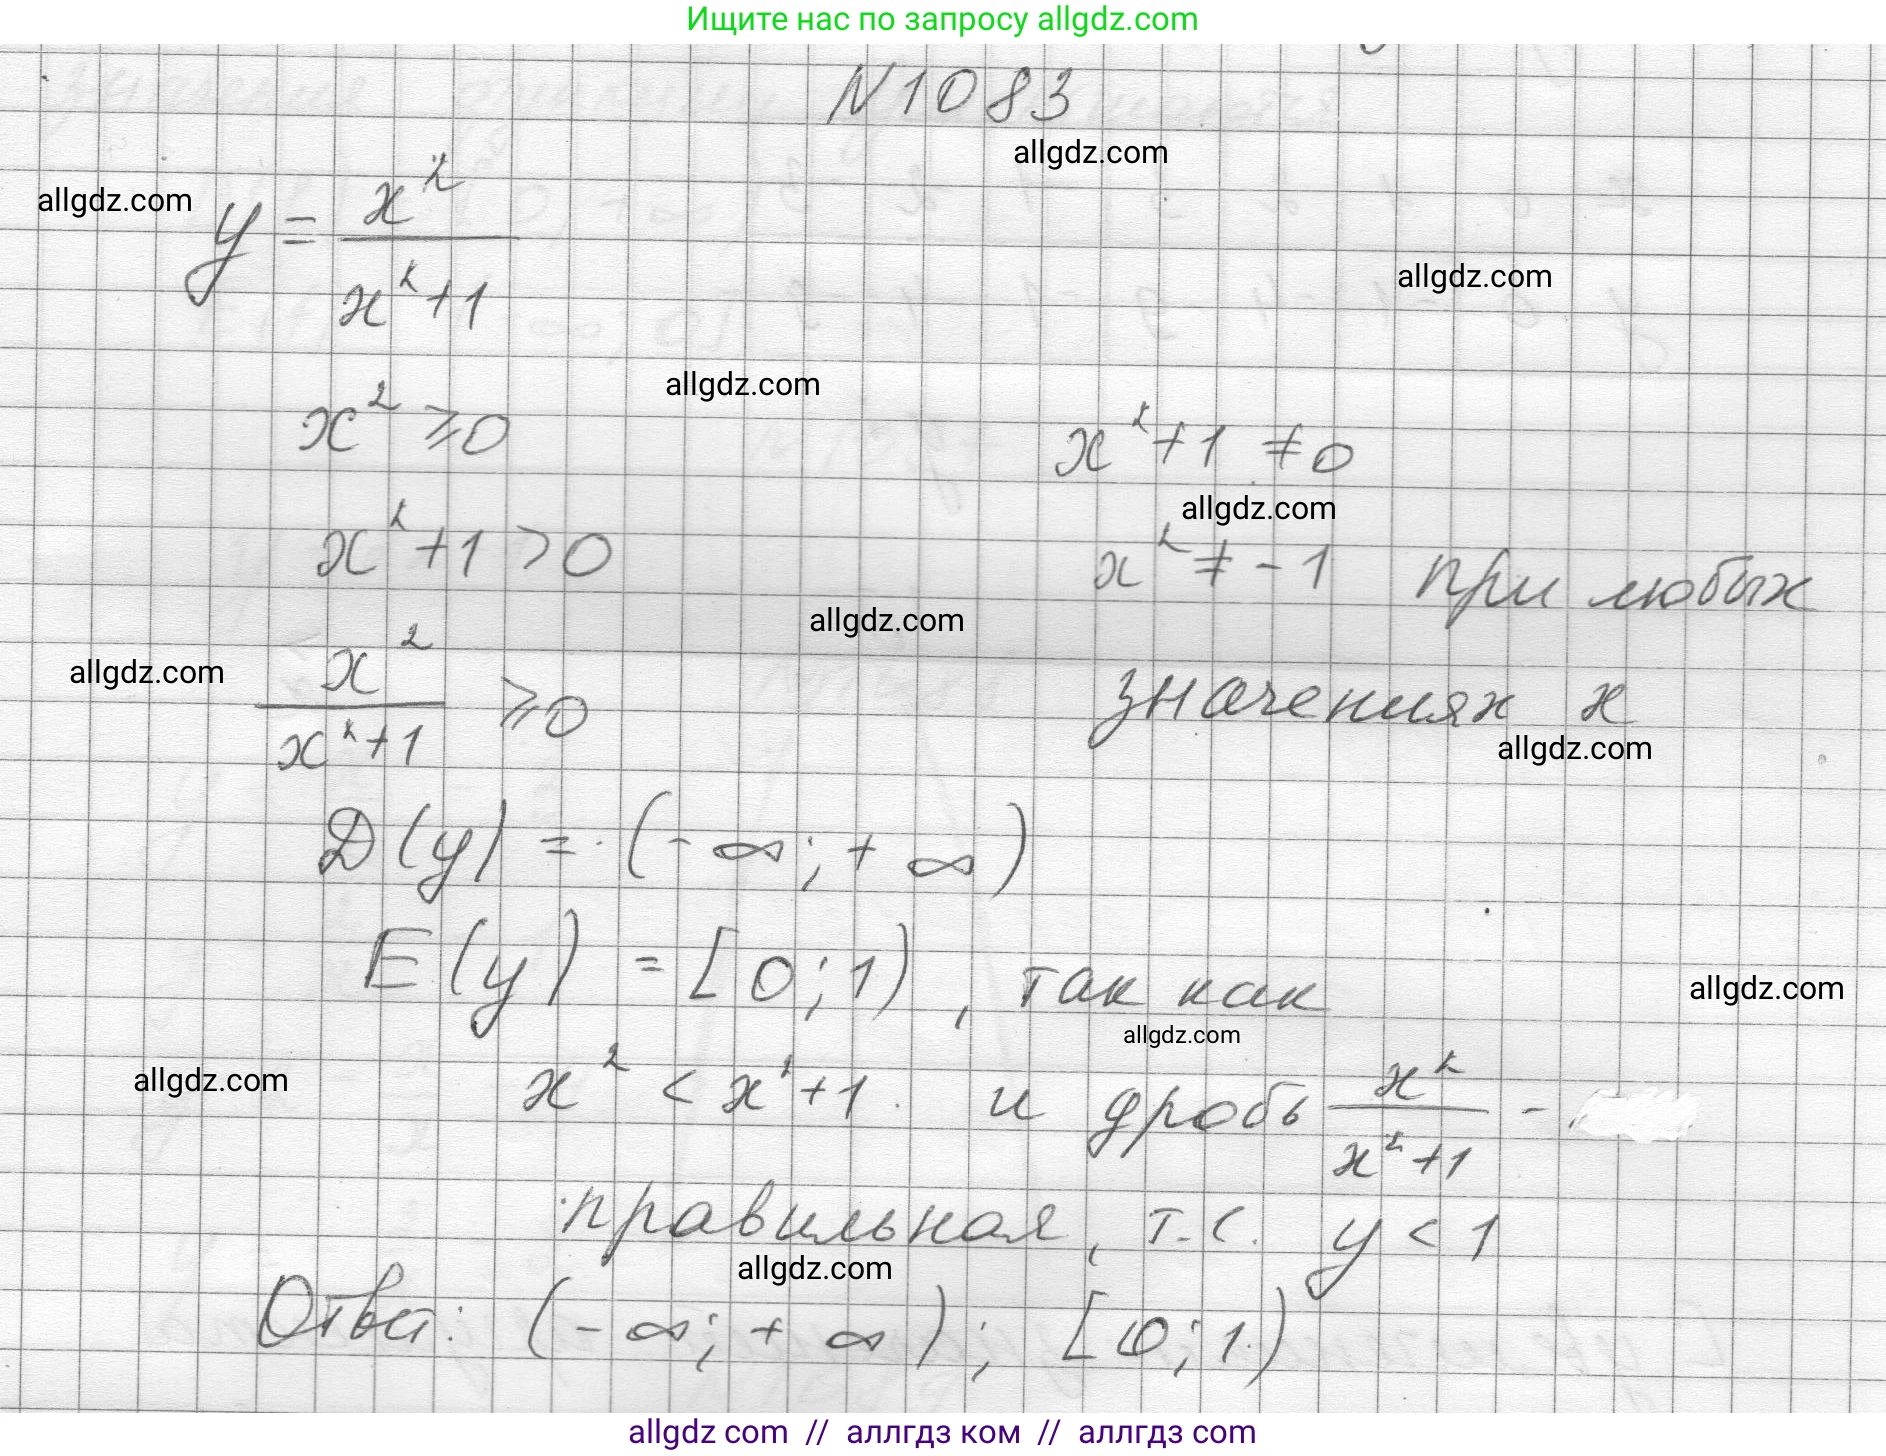 Ищите нас по запросу allgdz.com
N1083
allgdz.com
allgdz.com
y = x²/(x²+1)
allgdz.com
allgdz.com
x² ⩾ 0
x²+1 ≠ 0
allgdz.com
x²+1 > 0
x² ≠ -1 при любых
allgdz.com
allgdz.com
x²/(x²+1) ⩾ 0
значениях x
allgdz.com
D(y) = (-∞; +∞)
E(y) = [0; 1), так как
allgdz.com
allgdz.com
allgdz.com
x² < x²+1 и дробь x²/(x²+1) -
правильная, т.е. y < 1
allgdz.com
Ответ: (-∞; +∞); [0; 1)
allgdz com // аллгдз ком // аллгдз com